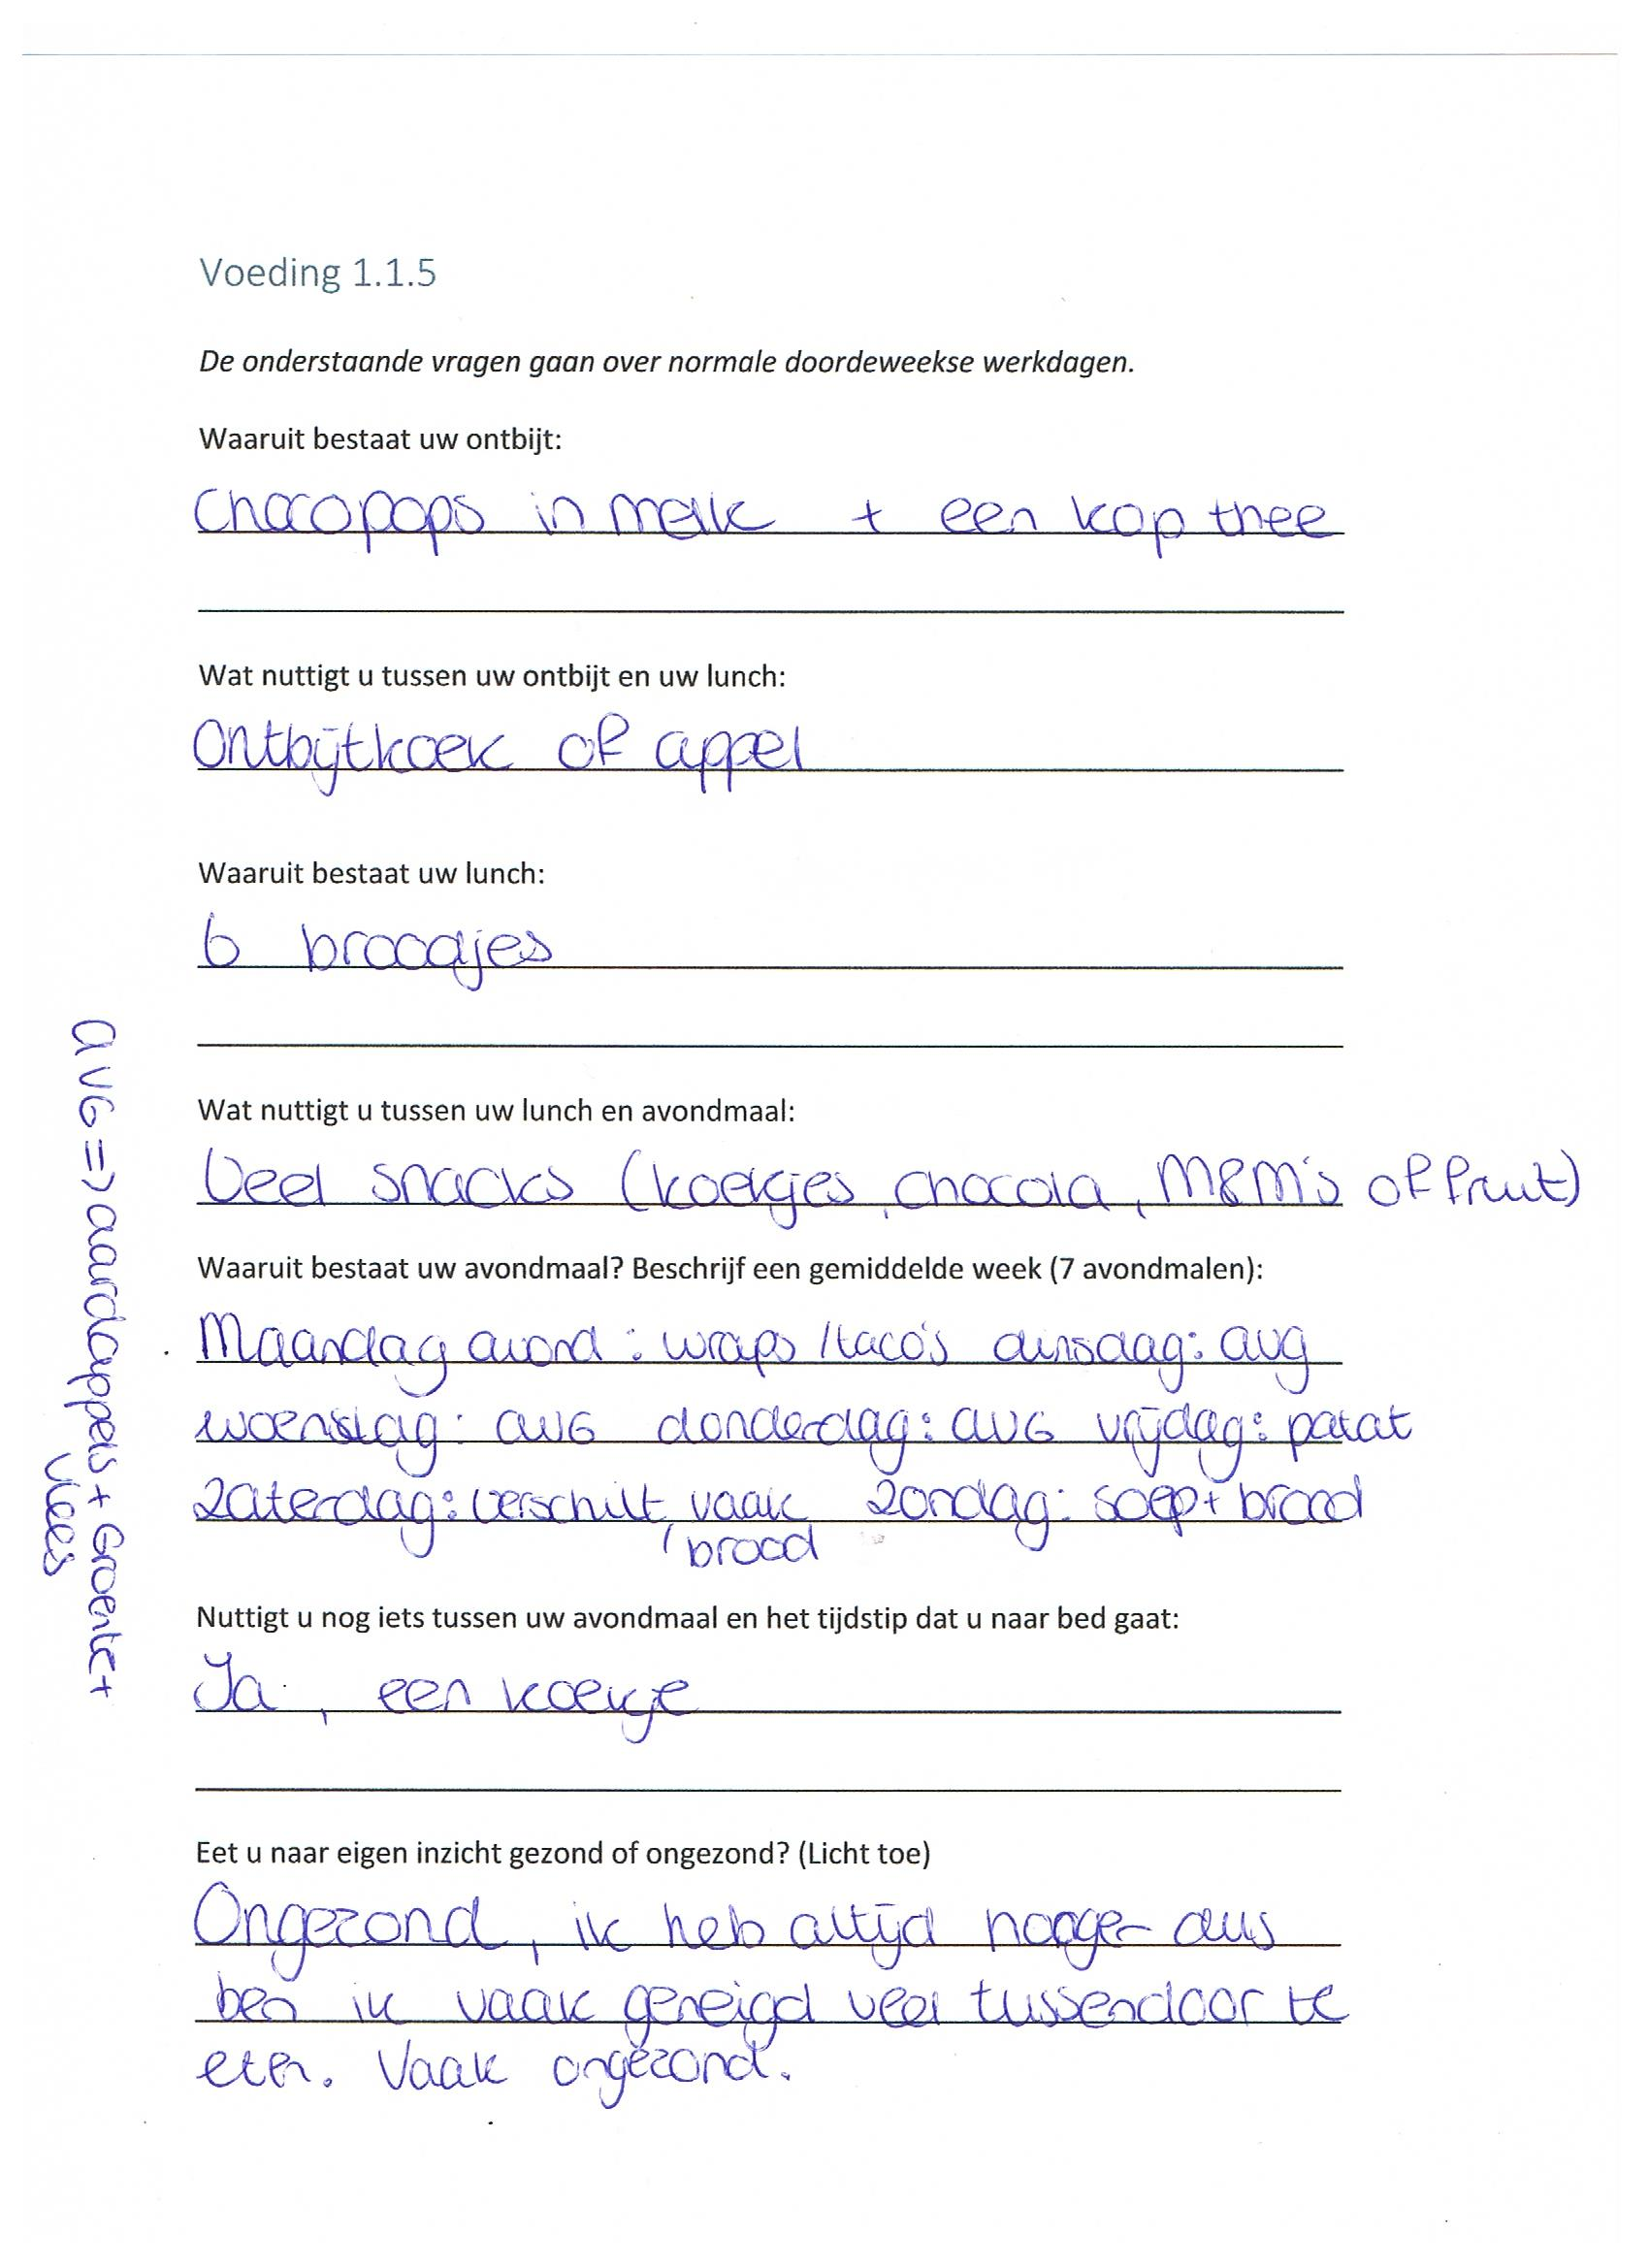 Voeding 1.1.5
De onderstaande vragen gaan over normale doordeweekse werkdagen.
Waaruit bestaat uw ontbijt:
Chocopops in melk + een kop thee
Wat nuttigt u tussen uw ontbijt en uw lunch:
Ontbijtkoek of appel
Waaruit bestaat uw lunch:
6 broodjes
Wat nuttigt u tussen uw lunch en avondmaal:
Veel snacks (koekjes, chocola, M&M's of fruit)
Waaruit bestaat uw avondmaal? Beschrijf een gemiddelde week (7 avondmalen):
Maandag avond: wraps / taco's dinsdag: avg
woensdag: AVG donderdag: AVG vrijdag: patat
Zaterdag: verschilt, vaak Zondag: soep + brood
brood
AVG => aardappels + Groente +
Vlees
Nuttigt u nog iets tussen uw avondmaal en het tijdstip dat u naar bed gaat:
Ja, een koekje
Eet u naar eigen inzicht gezond of ongezond? (Licht toe)
Ongezond, ik heb altijd honger dus
ben ik vaak geneigd veel tussendoor te
eten. Vaak ongezond.